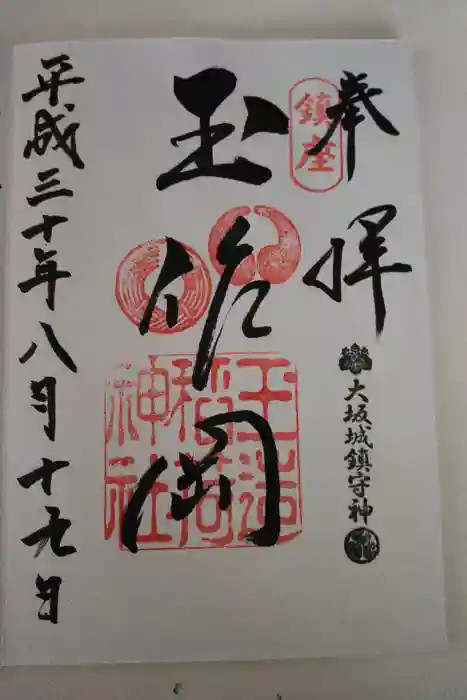 奉拝
鎮座
大坂城鎮守神
玉作岡
玉造
稲荷
神社
平成三十年八月十九日